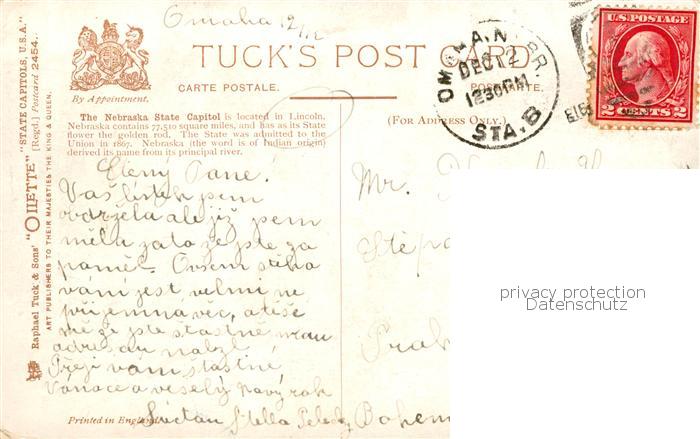 Omaha 12/12
TUCK'S POST CARD
CARTE POSTALE. POSTKARTE.
By Appointment.
Raphael Tuck & Sons' "OILETTE" "STATE CAPITOLS, U.S.A."
[Regd.] Postcard 2454.
ART PUBLISHERS TO THEIR MAJESTIES THE KING & QUEEN.
The Nebraska State Capitol is located in Lincoln.
Nebraska contains 77,510 square miles, and has as its State
flower the golden rod. The State was admitted to the
Union in 1867. Nebraska (the word is of Indian origin)
derived its name from its principal river.
(FOR ADDRESS ONLY.)
DEC 12
12 30 PM
STA. B
U.S. POSTAGE
2 CENTS 2
Ctěný Pane!
Vaš lístek jsem
obdržela ale již jsem
měla zato že jste za
pomněl. Ovsem
vání jest velmi ne
příjemna věc, a těší
mě že jste stastně
adresu nalezl
Přeji vam stastné
Vánoce a veselý nový rok
Stella
Mr.
Štěpá
Prah
Bohem
Printed in England.
privacy protection
Datenschutz